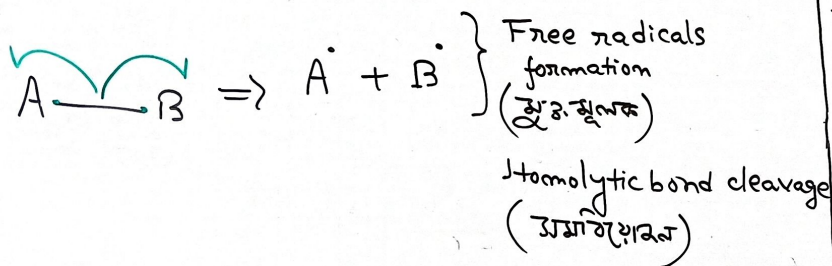 A — B ⇒ Ȧ + Ḃ } Free radicals
formation
(মুক্ত মূলক)
Homolytic bond cleavage